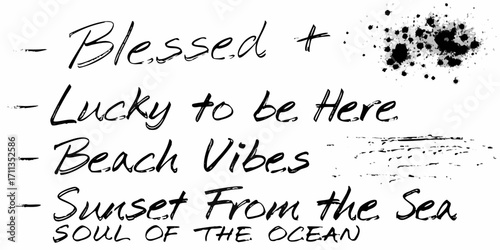 - Blessed +
- Lucky to be Here
- Beach Vibes
- Sunset From the Sea
SOUL OF THE OCEAN
Adobe Stock | #1711352586